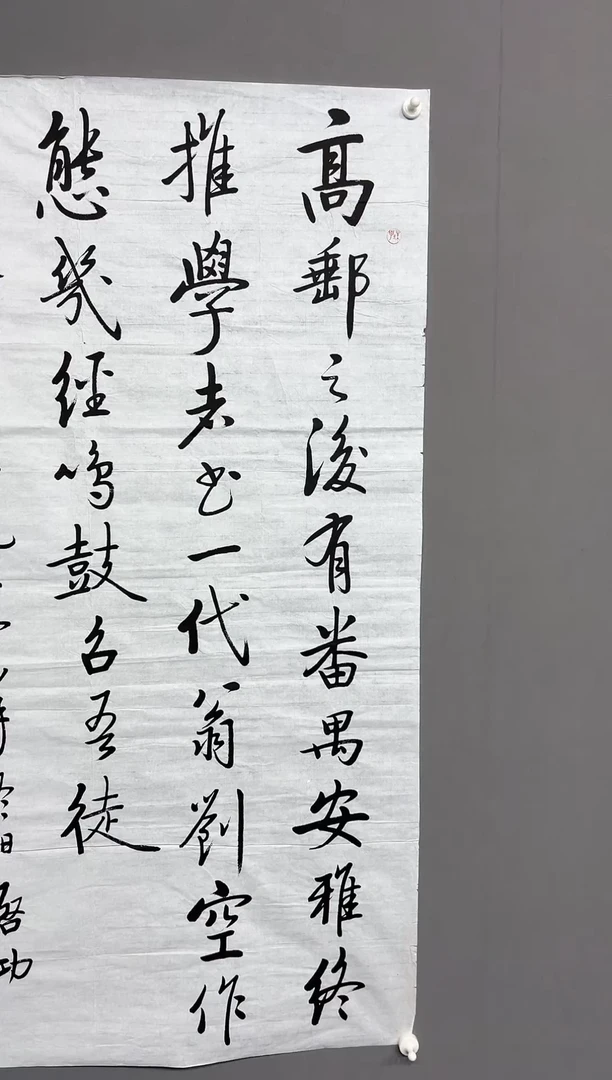 高郵之後有番禺安雅終
推學者书一代翁劉空作
態幾經鳴鼓召吾徒
啓功